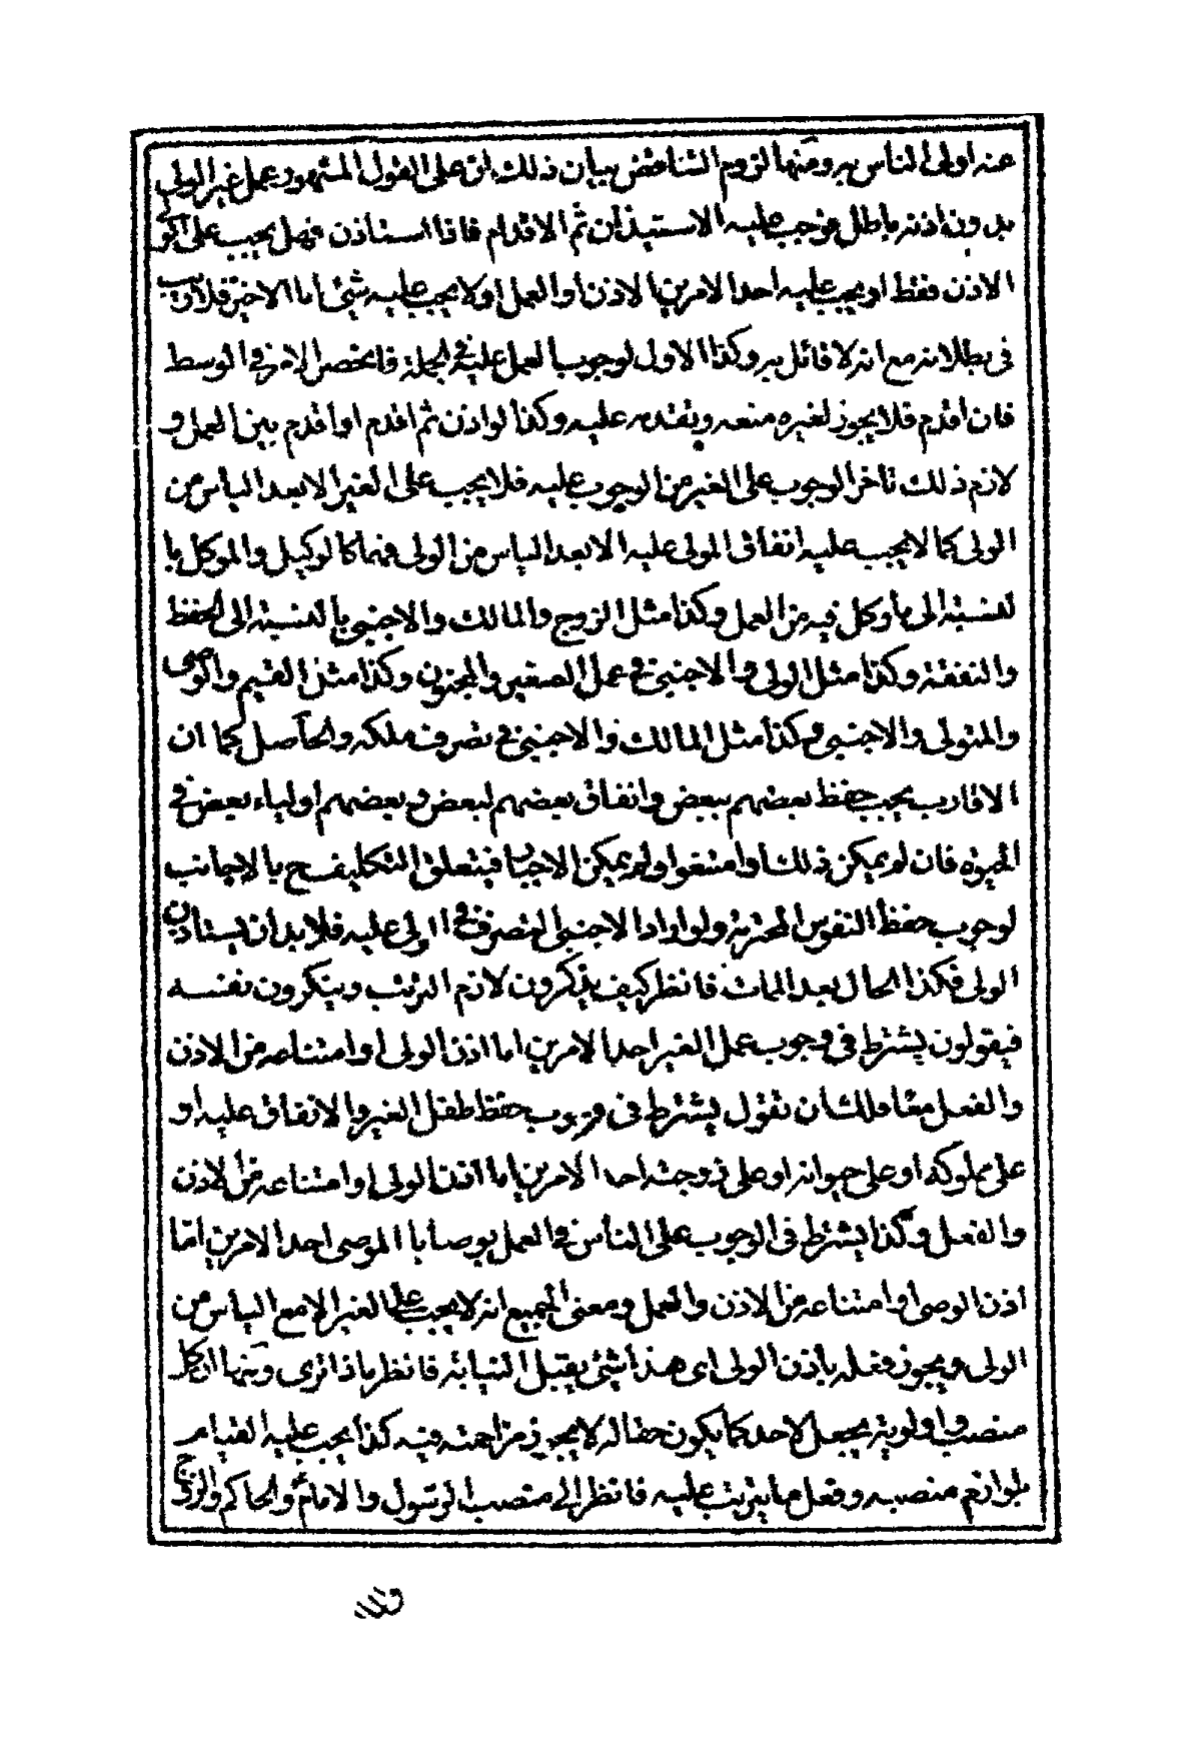 عنه اولى الناس به ومنها لزوم التناقض بيان ذلك ان على القول المشهور عمل غير الولي
بدون اذنه باطل فوجب عليه الاستيذان ثم الاقدام فاذا استاذن فهل يجب على الولي
الاذن فقط او يجب عليه احد الامرين الاذن او العمل او لا يجب عليه شئ اما الاخير فلا ريب
فى بطلانه مع انه لا قائل به وكذا الاول لوجوب العمل عليه في الجملة فانحصر الامر في الوسط
فان اقدم فلا يجوز لغيره منعه وتقدمه عليه وكذا لو اذن ثم اقدم او اقدم بين العمل و
لازم ذلك تاخر الوجوب على الغير من الوجوب عليه فلا يجب على الغير الا بعد الياس من
الولى كما لا يجب عليه انفاق المولى عليه الا بعد الياس من الولى فهما كالوكيل والموكل با
لنسبة الى ما وكل فيه من العمل وكذا مثل الزوج والمالك والاجنبى بالنسبة الى الحفظ
والنفقة وكذا مثل الولى والاجنبى في عمل الصغير والمجنون وكذا مثل القيم والوصى
والمتولى والاجنبى وكذا مثل المالك والاجنبى في تصرف ملكه والحاصل كما ان
الاقارب يجب حفظ بعضهم ببعض وانفاق بعضهم لبعض وبعضهم اولياء بعض في
الحيوة فان لم يمكن ذلك او امتنعوا ولم يمكن الاجبار فيتعلق التكليف ح بالاجانب
لوجوب حفظ النفوس المحترمة ولو اراد الاجنبى التصرف في المولى عليه فلا بد ان يستاذن
الولى فكذا الحال بعد الممات فانظر كيف يذكرون لازم الترتب وينكرون نفسه
فيقولون يشترط فى وجوب عمل الغير احد الامرين اما اذن الولى او امتناعه من الاذن
والفعل معا ولك ان تقول يشترط فى وجوب حفظ طفل الغير والانفاق عليه او
على مملوكه او على حيوانه او على زوجته احد الامرين اما اذن الولى او امتناعه من الاذن
والفعل وكذا يشترط فى الوجوب على الناس في العمل بوصايا الموصى احد الامرين اما
اذن الوصى او امتناعه من الاذن والعمل ومعنى الجميع انه لا يجب على الغير الا مع الياس من
الولى ويجوز فعله باذن الولى اى هذا شئ يقبل النيابة فانظر ماذا ترى ومنها ان كل
منصب واولوية يجعل لاحد كما يكون حقا له لا يجوز مزاحمته فيه كذا يجب عليه القيام
بلوازم منصبه وفعل ما يترتب عليه فانظر الى منصب الرسول والامام والحاكم والزوج